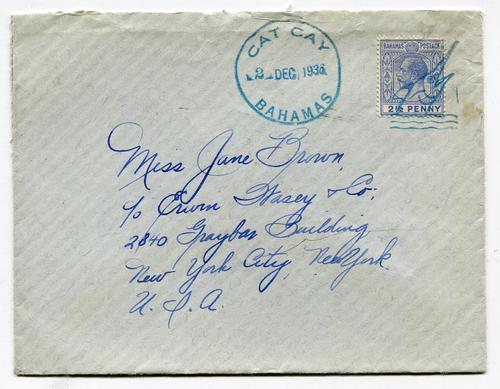 CAT CAY
2 DEC 1936
BAHAMAS
BAHAMAS POSTAGE
2½ PENNY
Miss Jane Brown,
c/o Erwin Wasey & Co.
2840 Graybar Building
New York City, New York.
U.S.A.